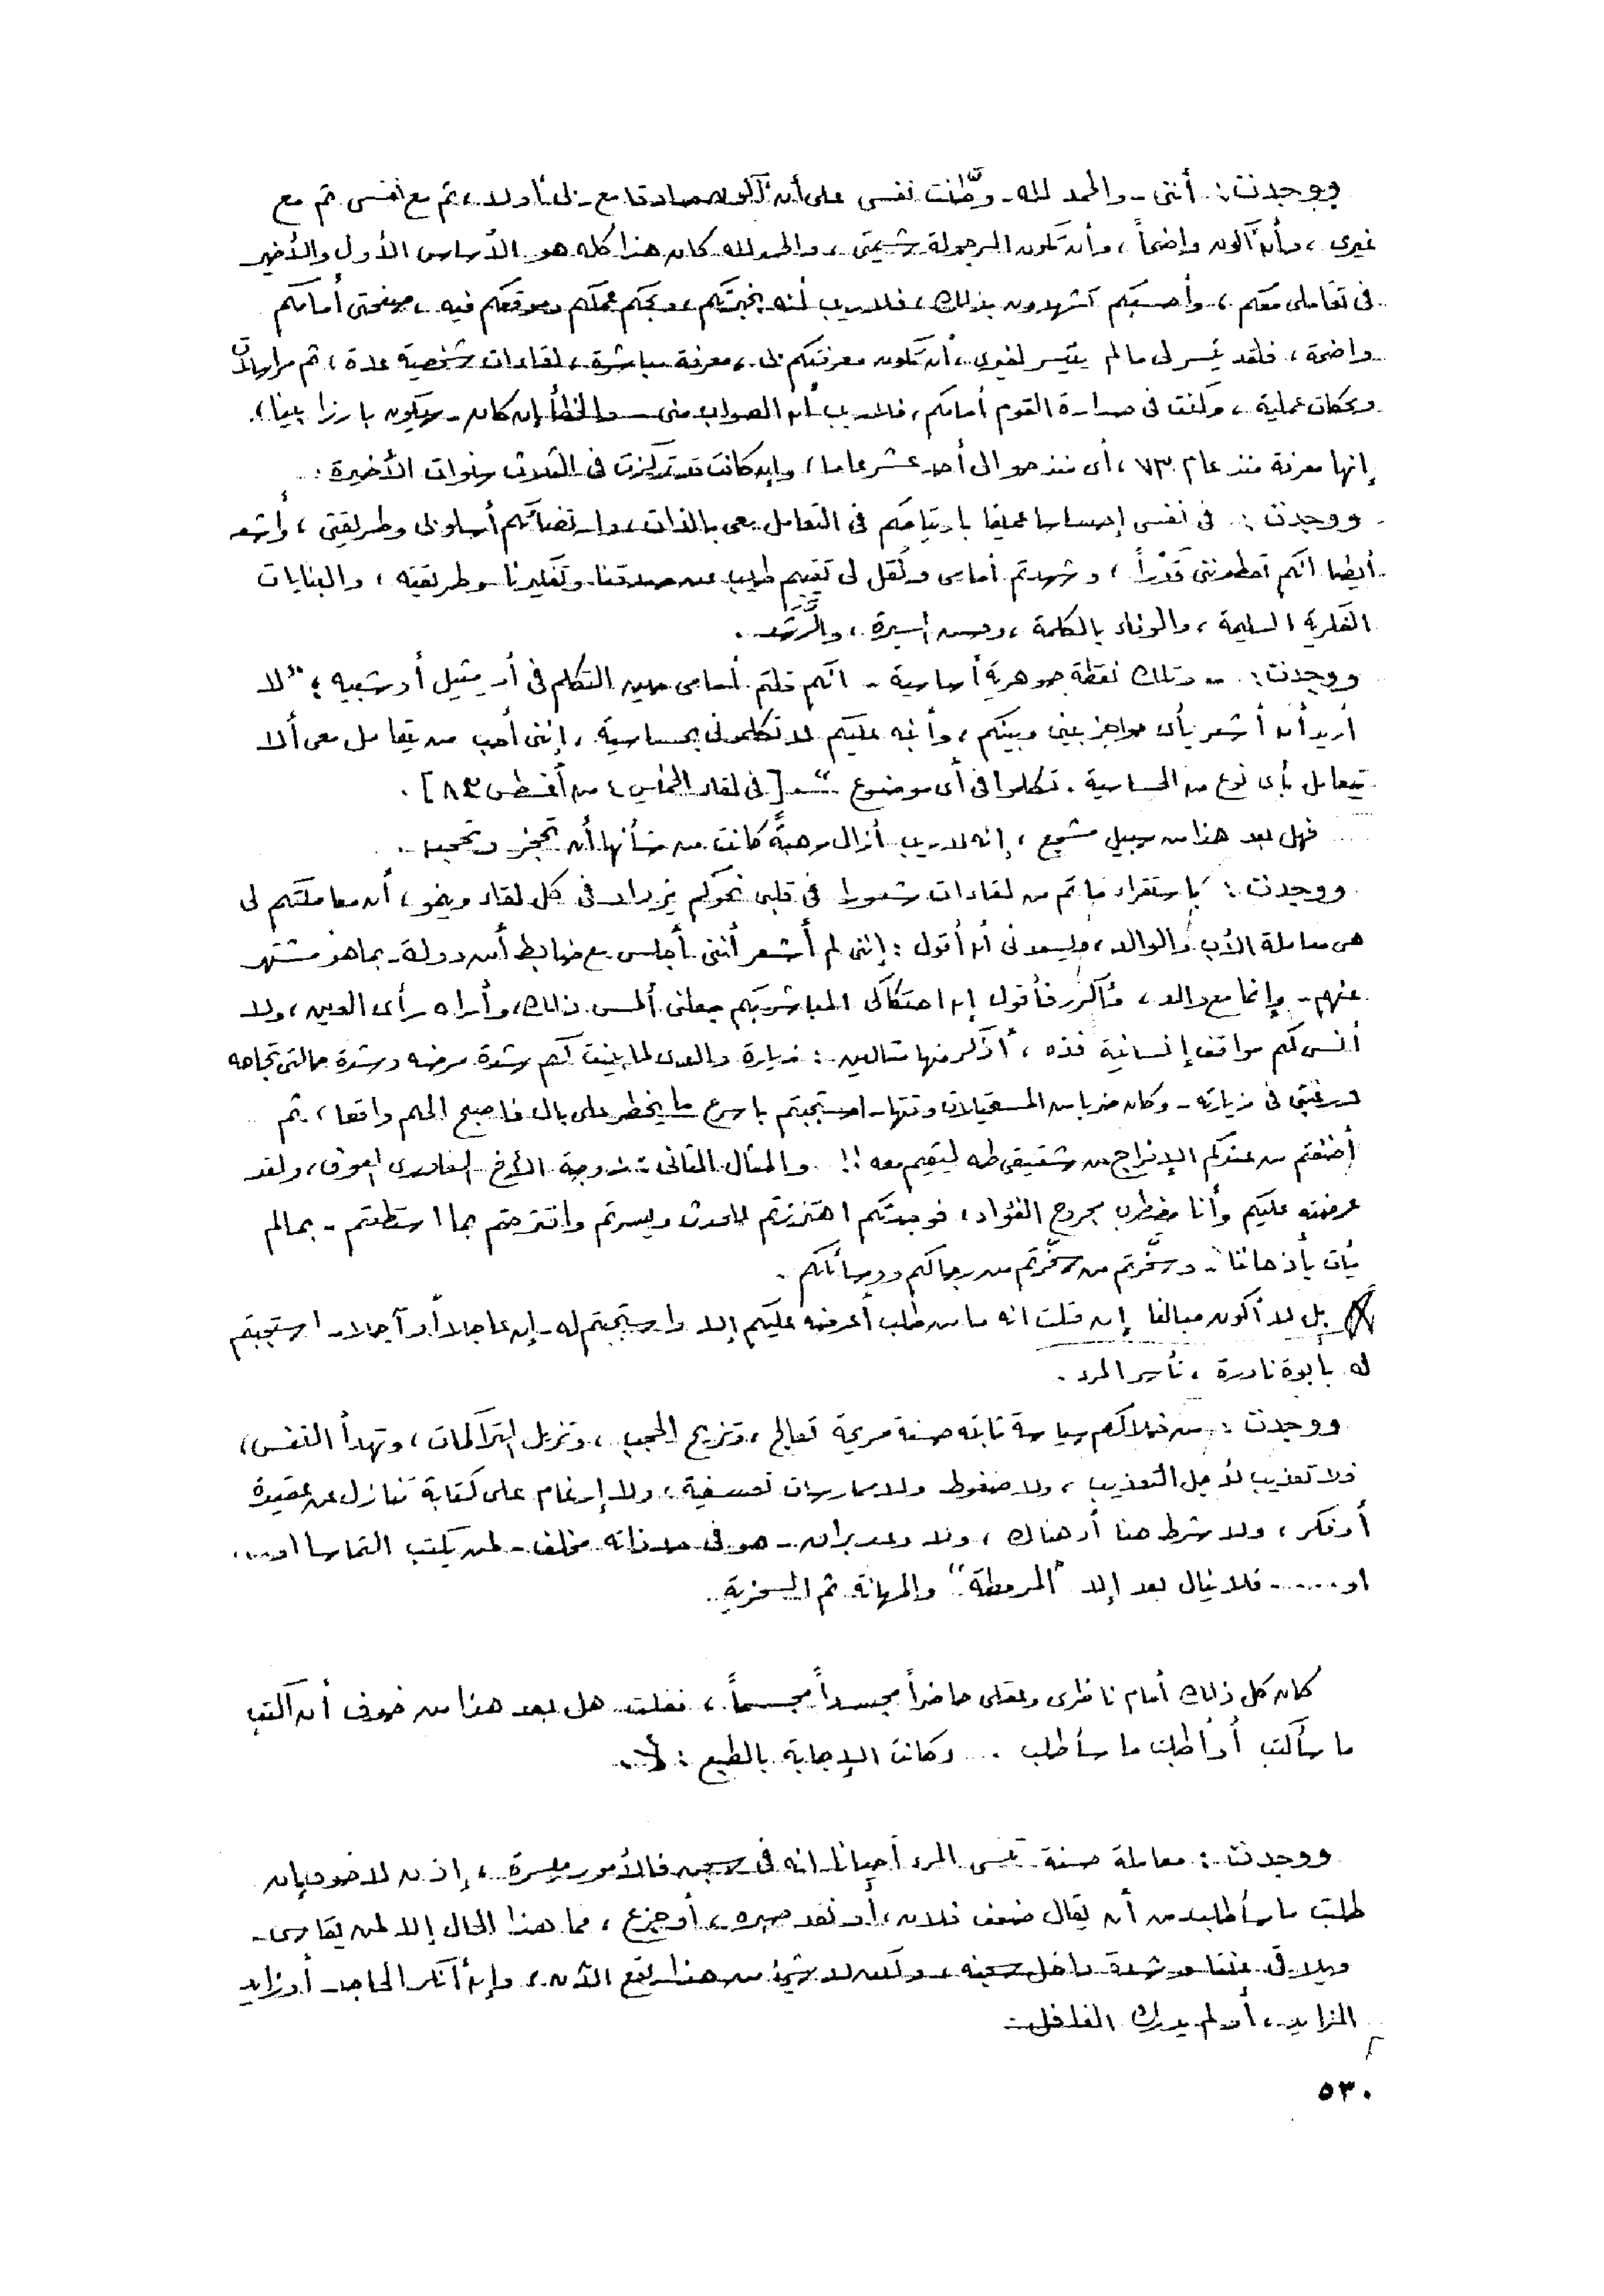 ووجدت: أننى - والحمد لله - وطّنت نفسى على أن أكون صادقا مع ربى أولا، ثم مع نفسى ثم مع
غيرى، وأن أكون واضحاً، وأن تكون الرجولة شيمتى، والحمد لله كان هذا كله هو الأساس الأول والأخير
فى تعاملى معكم، وأحسبكم تشهدون بذلك، فلا ريب أنه بخبرتكم، وبحكم عملكم وموقعكم فيه، صفحتى أمامكم
واضحة، فلقد تيسر لى ما لم يتيسر لغيرى، أن تكون معرفتكم بى، معرفة مباشرة، لقاءات شخصية عدة، ثم مراسلات
ومحكات عملية، وكنت فى صدارة القوم أمامكم، فلا ريب أن الصواب منى - والخطأ إن كان - سيكون بارزا بينا،
إنها معرفة منذ عام ٧٣، أى منذ حوالى أحد عشر عاما، وإن كانت قد تركزت فى الثلاث سنوات الأخيرة.
ووجدت: فى نفسى إحساسا عميقا بارتياحكم فى التعامل معى بالذات، وارتضائكم أسلوبى وطريقتى، وأشعر
أيضا أنكم تعطوننى قدْراً، وشهدتم أمامى ونُقل لى تقييم طيب عن صدقنا وتفكيرنا وطريقته، والبنايات
الفكرية السليمة، والوفاء بالكلمة، وحسن السيرة، والرَّشَد.
ووجدت: - وتلك نقطة جوهرية أساسية - انكم قلتم أمامى حين التكلم فى أى مثيل أو شبيه: "لا
أريد أن أشعر بأى حواجز بينى وبينكم، وأنبه عليكم لا تكلمونى بحساسية، إننى أحب من يتعامل معى ألا
يتعامل بأى نوع من الحساسية. تكلموا فى أى موضوع". [فى لقاء الخميس ٤ من أغسطس ٨٣].
فهل بعد هذا من سبيل مشجع، إنه لا ريب أزال رهبةً كانت من شأنها أن تحجز وتحجب.
ووجدت: باستقراء ما تم من لقاءات شعورا فى قلبى نحوكم يزداد فى كل لقاء وينمو، أن معاملتكم لى
هى معاملة الأب والوالد، ويسعدنى أن أقول: إننى لم أشعر أننى أجلس مع ضابط أمن دولة - بما هو مشتهر
عنهم - وإنما مع والد، وأكرر فأقول إن احتكاكى المباشر بكم جعلنى ألمس ذلك، وأراه رأى العين، ولا
أنسى لكم مواقف إنسانية فذه، أذكر منها مثالين: زيارة والدى لما بينت لكم شدة مرضه وشدة حالتى تجاهه
ورغبتى فى زيارته - وكان ضربا من المستحيلات وقتها - استجبتم بأسرع ما يخطر على بال فأصبح الحلم واقعا، ثم
أضفتم من عندكم الإفراج عن شقيقى طه ليقيم معه!! والمثال الثانى: زوجة الأخ، ولقد
عرضته عليكم وأنا مضطرب مجروح الفؤاد، فوجدتكم اهتززتم للحدث ويسرتم واقترحتم بما استطعتم - بما لم
يأت بأذهاننا - وسخّرتم من سخّرتم من رجالكم ووسائلكم.
بل لا أكون مبالغا إن قلت انه ما من طلب أعرضه عليكم إلا واستجبتم له - إن عاجلا أو آجلا - استجبتم
له بأبوة نادرة، تأسر المرء.
ووجدت: من خلالكم سياسة ثابته حسنة مريحة تعالج، وتزيح الحجب، وتزيل التراكمات، وتهدأ النفس،
فلا تعذيب لأجل التعذيب، ولا ضغوط ولا ممارسات تعسفية، ولا إرغام على كتابة تنازل عن عقيدة
أو فكر، ولا شرط هنا أو هناك، ولا وعد براق - هو فى حد ذاته مخلف - لمن يكتب التماسا او....
او..... فلا ينال بعد إلا "المرمطة" والمهانة ثم السخرية.
كان كل ذلك أمام ناظرى وعقلى حاضراً مجسداً مجسماً، فقلت هل بعد هذا من خوف أن أكتب
ما سأكتب أو أطلب ما سأطلب. وكانت الإجابة بالطبع: لا.
ووجدت: معاملة حسنة تنسى المرء أحيانا انه فى سجن فالأمور ميسرة، إذن لا خوف إن
طلبت ما سأطلبه من أن يقال ضعف فلان، أو نفد صبره، أو جزع، فما هذا الحال إلا لمن يقاسى -
ويلاقى عنتا وشدة داخل سجنه، ولكن لا شيئ من هذا يقع الآن، وإن أنكر الجاحد - أو زايد
المزايد، أو لم يدرك الغافل.
٥٣٠